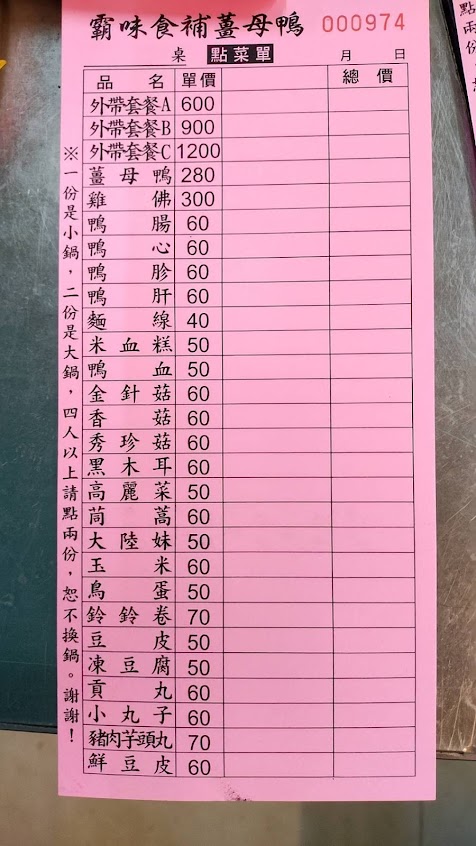 霸味食補薑母鴨 000974
桌 點菜單 月 日
品名 單價 總價
外帶套餐A 600
外帶套餐B 900
外帶套餐C 1200
薑母鴨 280
雞佛 300
鴨腸 60
鴨心 60
鴨胗 60
鴨肝 60
麵線 40
米血糕 50
鴨血 50
金針菇 60
香菇 60
秀珍菇 60
黑木耳 60
高麗菜 50
茼蒿 60
大陸妹 50
玉米 60
鳥蛋 50
鈴鈴卷 70
豆皮 50
凍豆腐 50
貢丸 60
小丸子 60
豬肉芋頭丸 70
鮮豆皮 60
※一份是小鍋，二份是大鍋，四人以上請點兩份，恕不換鍋。謝謝！